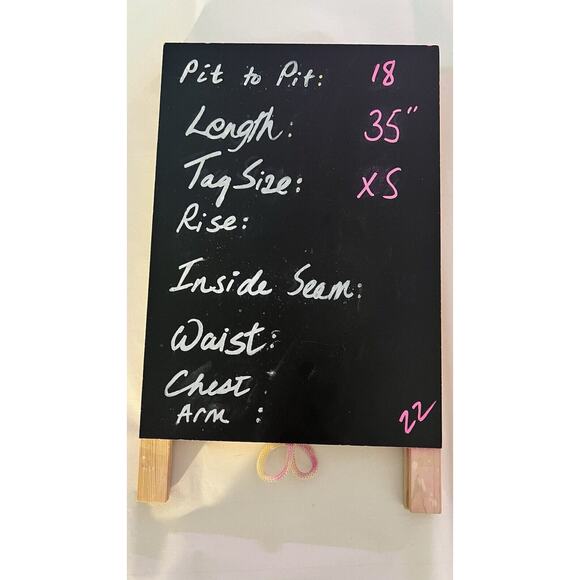 Pit to Pit: 18
Length: 35"
Tag Size: XS
Rise:
Inside Seam:
Waist:
Chest
Arm : 22